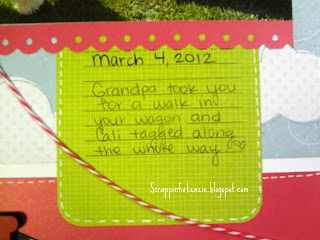 march 4, 2012
Grandpa took you
for a walk in
your wagon and
Cali tagged along
the whole way.
Scrappinforkenzie.blogspot.com